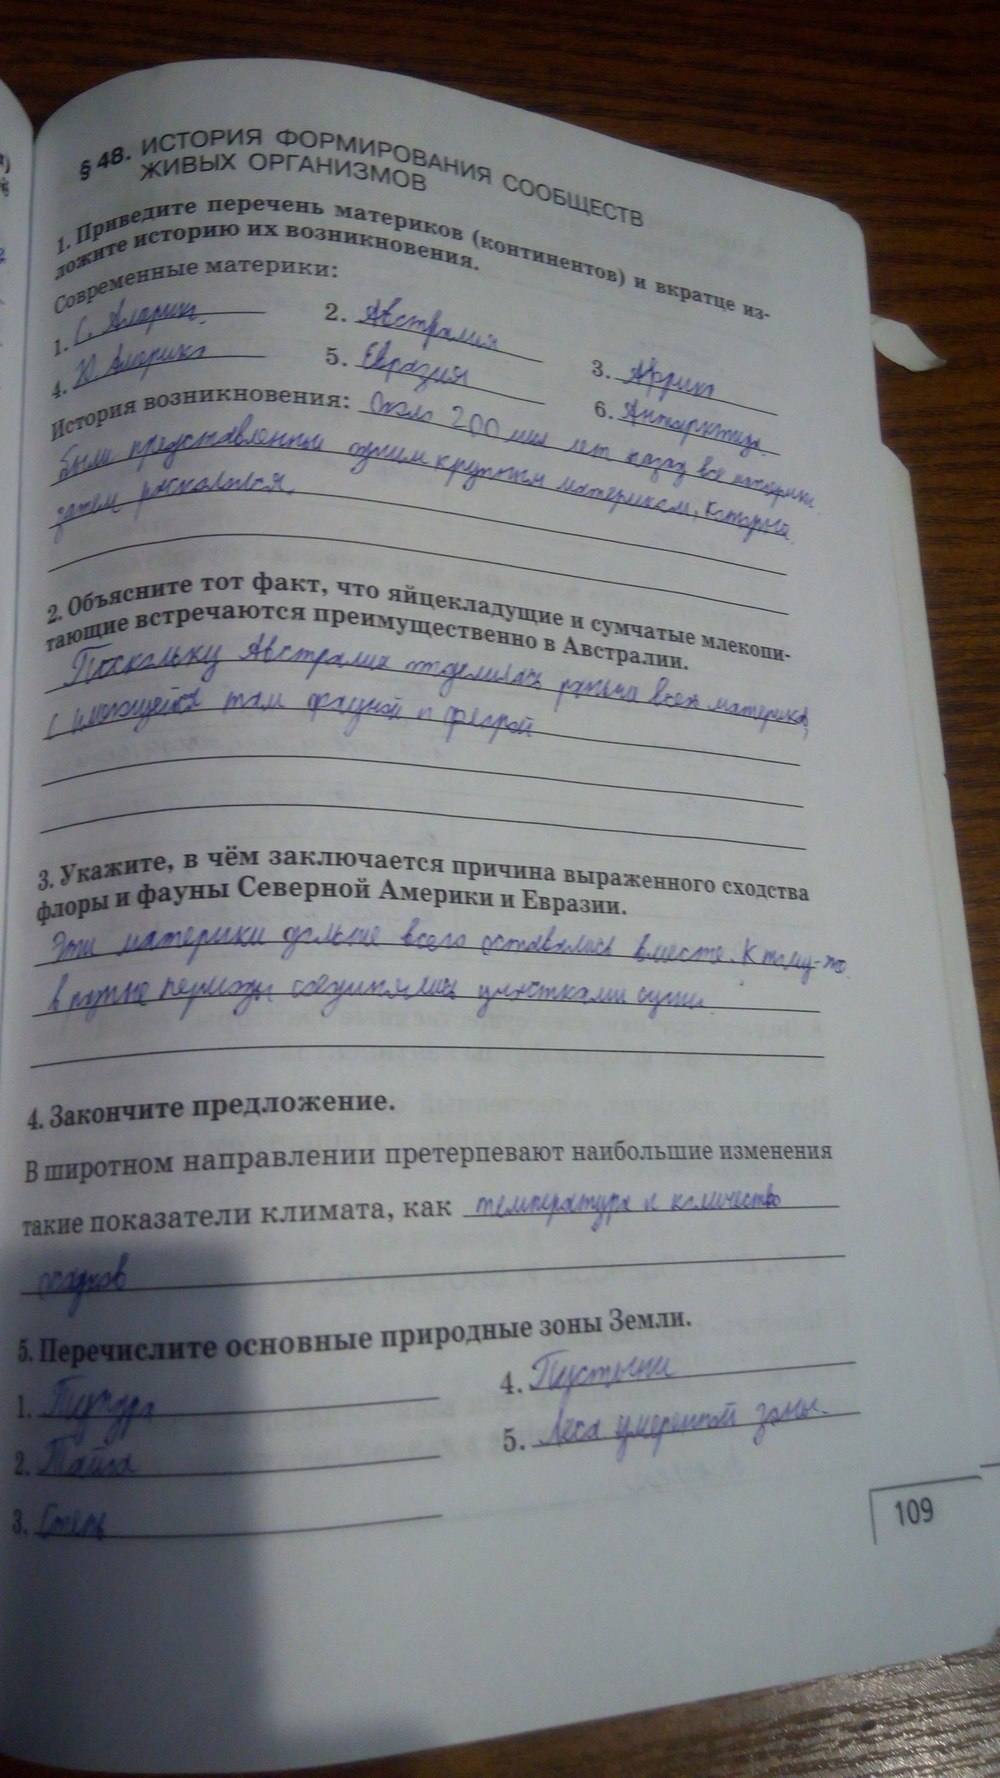 § 48. ИСТОРИЯ ФОРМИРОВАНИЯ СООБЩЕСТВ
ЖИВЫХ ОРГАНИЗМОВ
1. Приведите перечень материков (континентов) и вкратце из-
ложите историю их возникновения.
Современные материки:
1. С. Америка 2. Австралия 3. Африка
4. Ю. Америка 5. Евразия 6. Антарктида
История возникновения: Около 200 млн лет назад все материки
были представленны одним крупным материком, который
затем раскололся.
2. Объясните тот факт, что яйцекладущие и сумчатые млекопи-
тающие встречаются преимущественно в Австралии.
Поскольку Австралия отделилась раньше всех материков,
с имеющейся там фауной и флорой
3. Укажите, в чём заключается причина выраженного сходства
флоры и фауны Северной Америки и Евразии.
Эти материки дольше всего оставались вместе. К тому-же
в разные периоды соединялись участками суши.
4. Закончите предложение.
В широтном направлении претерпевают наибольшие изменения
такие показатели климата, как температура и количество
осадков
5. Перечислите основные природные зоны Земли.
1. Тундра 4. Пустыни
2. Тайга 5. Леса умеренной зоны.
3. Степь
109